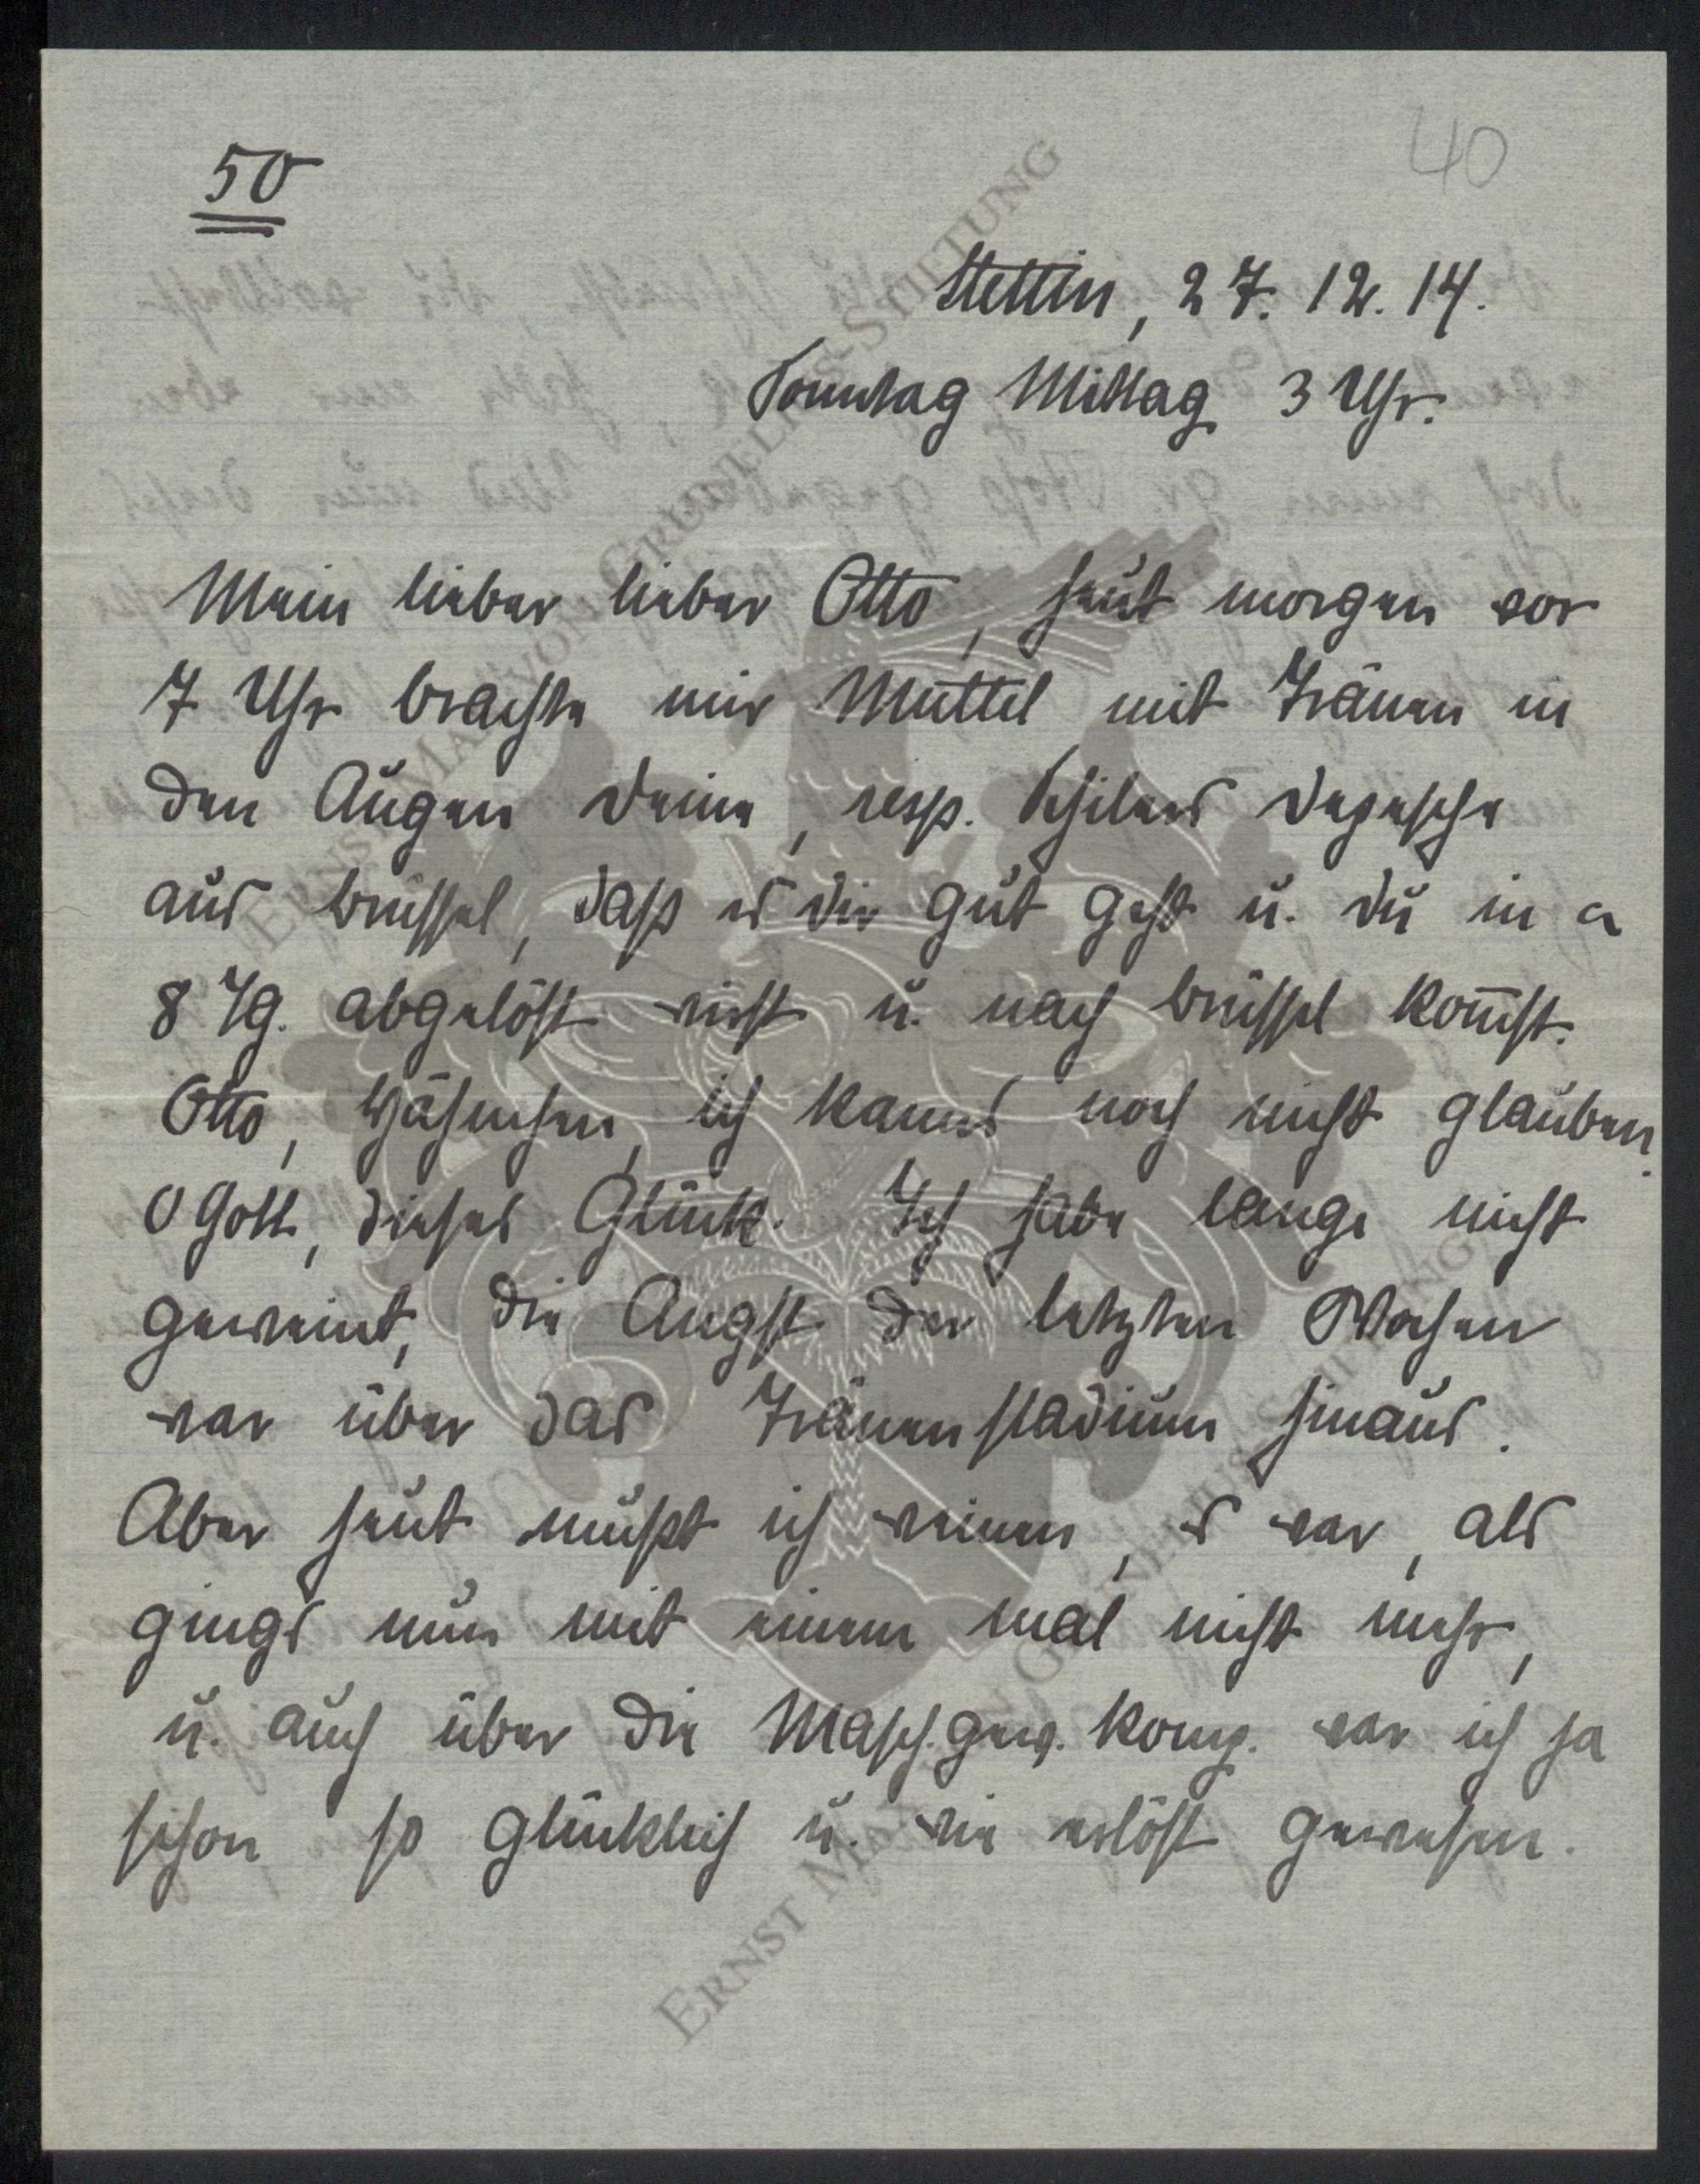 50
40
Stettin, 27. 12. 14.
Sonntag Mittag 3 Uhr.
Mein lieber lieber Otto, heut morgen vor
7 Uhr brachte mir Muttel mit Tränen in
den Augen deine, resp. Depesche
aus Brüssel, daß es dir gut geht u. du in ca
8 Tg. abgelöst wirst u. nach Brüssel kom̅st.
Otto, ich kanns noch nicht glauben.
O Gott, dieses Glück. Ich habe lange nicht
geweint, die Angst der letzten Wochen
war über das Tränenstadium hinaus.
Aber heut mußt ich weinen, es war, als
gings nun mit einem mal nicht mehr,
u. auch über die Masch.gew. Komp. war ich ja
schon so glücklich u. wie erlöst gewesen.
ERNST MAX VON GRUNELIUS-STIFTUNG
ERNST MAX VON GRUNELIUS-STIFTUNG